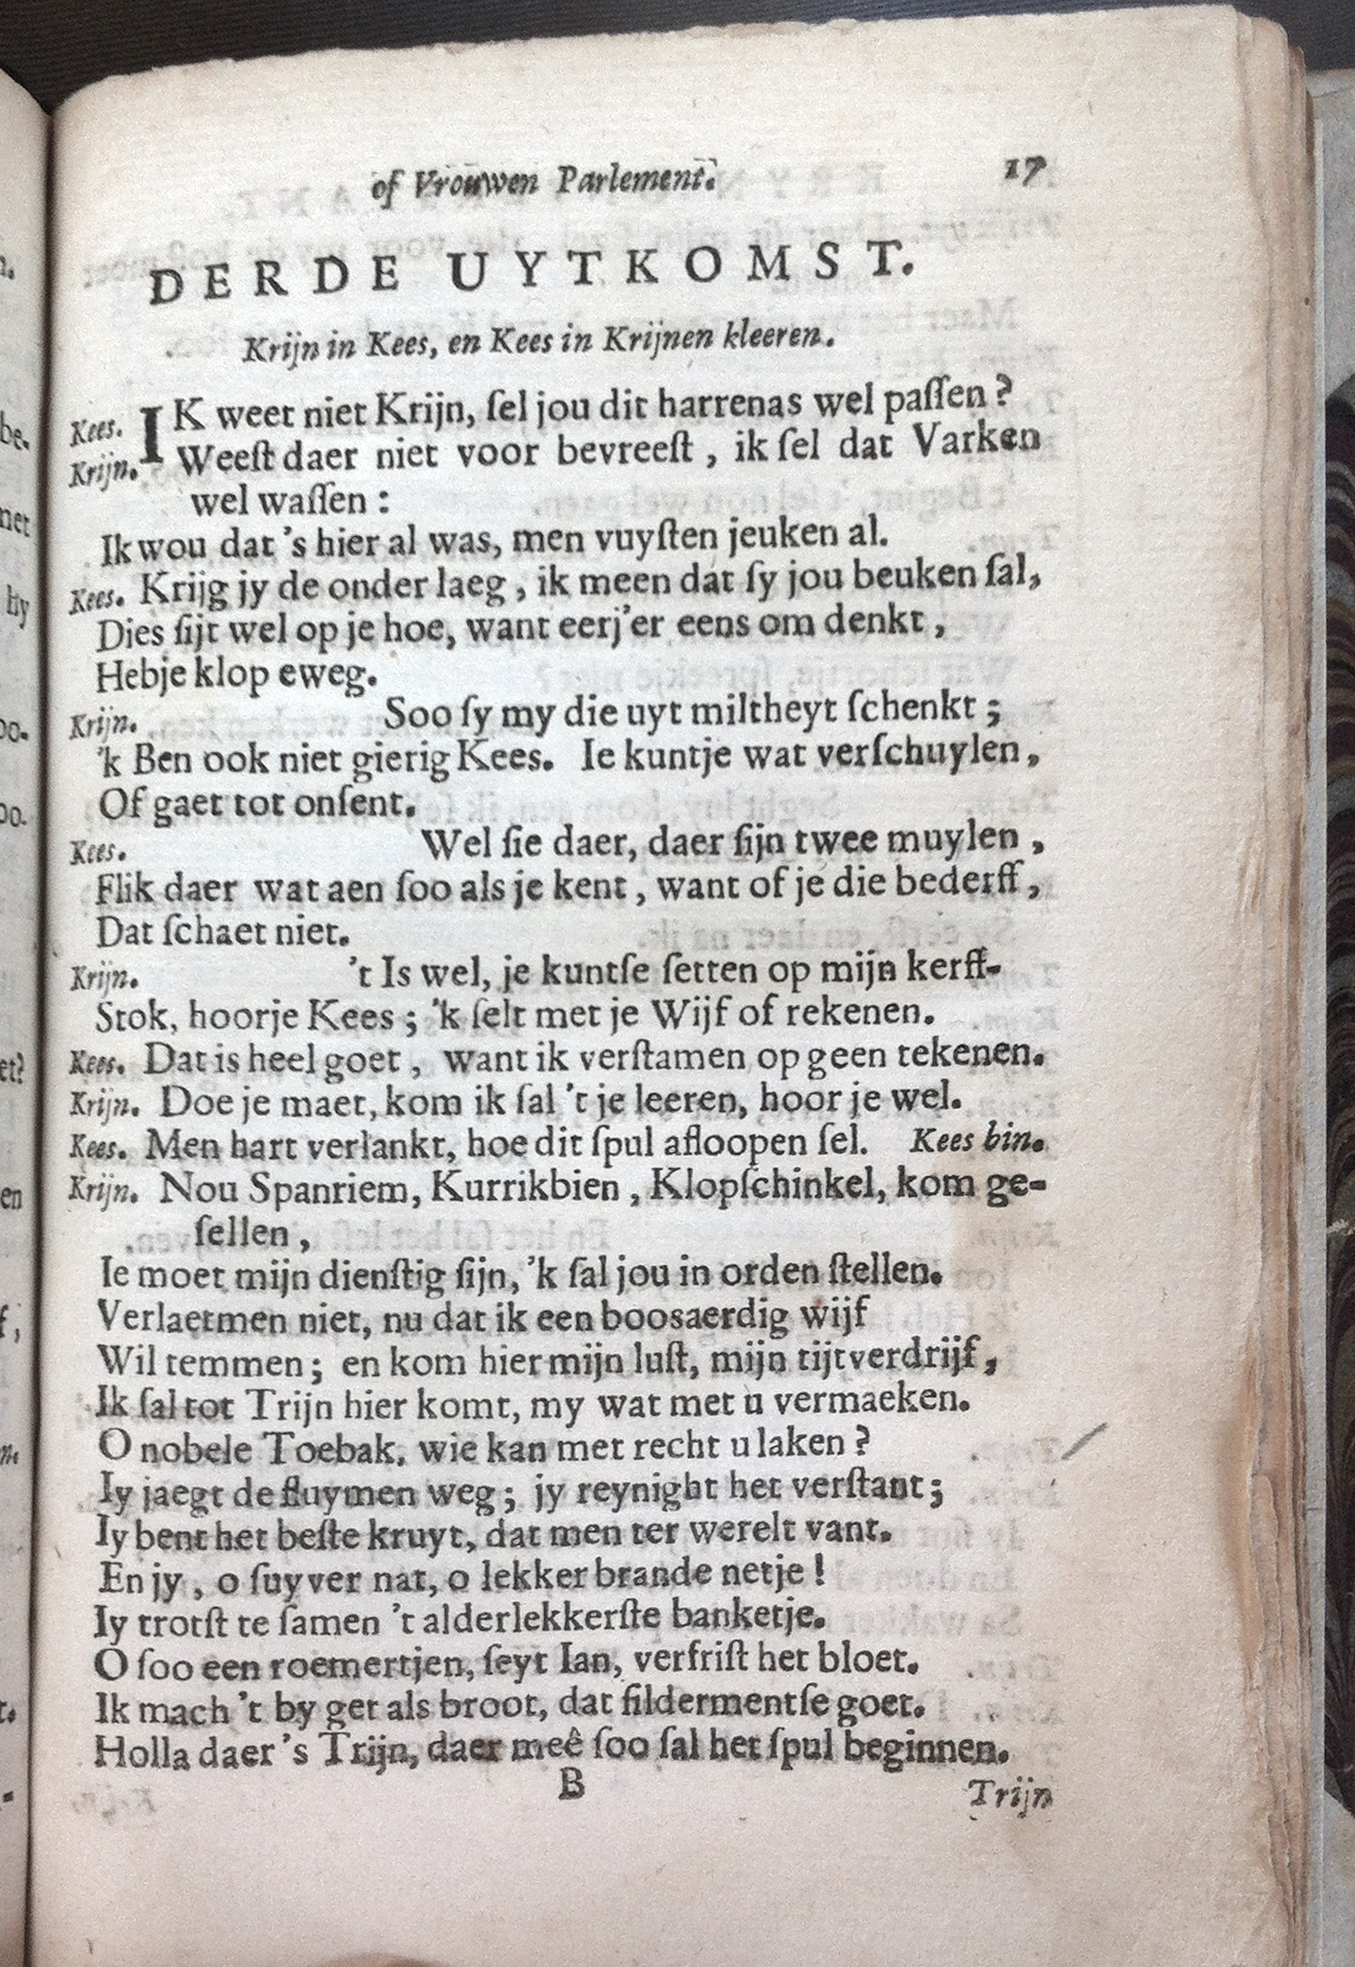 of Vrouwen Parlement. 17
DERDE UYTKOMST.
Krijn in Kees, en Kees in Krijnen kleeren.
Kees. IK weet niet Krijn, ſel jou dit harrenas wel paſſen?
Krijn. Weeſt daer niet voor bevreeſt, ik ſel dat Varken
wel waſſen:
Ik wou dat 's hier al was, men vuyſten jeuken al.
Kees. Krijg jy de onder laeg, ik meen dat ſy jou beuken ſal,
Dies ſijt wel op je hoe, want eerj'er eens om denkt,
Hebje klop eweg.
Krijn. Soo ſy my die uyt miltheyt ſchenkt;
'k Ben ook niet gierig Kees. Ie kuntje wat verſchuylen,
Of gaet tot onſent.
Kees. Wel ſie daer, daer ſijn twee muylen,
Flik daer wat aen ſoo als je kent, want of je die bederff,
Dat ſchaet niet.
Krijn. 't Is wel, je kuntſe ſetten op mijn kerff-
Stok, hoorje Kees; 'k ſelt met je Wijf of rekenen.
Kees. Dat is heel goet, want ik verſtamen op geen tekenen.
Krijn. Doe je maet, kom ik ſal 't je leeren, hoor je wel.
Kees. Men hart verlankt, hoe dit ſpul afloopen ſel. Kees bin.
Krijn. Nou Spanriem, Kurrikbien, Klopſchinkel, kom ge-
ſellen,
Ie moet mijn dienſtig ſijn, 'k ſal jou in orden ſtellen.
Verlaetmen niet, nu dat ik een boosaerdig wijf
Wil temmen; en kom hier mijn luſt, mijn tijtverdrijf,
Ik ſal tot Trijn hier komt, my wat met u vermaeken.
O nobele Toebak, wie kan met recht u laken?
Iy jaegt de fluymen weg; jy reynight het verſtant;
Iy bent het beſte kruyt, dat men ter werelt vant.
En jy, o ſuyver nat, o lekker brande netje!
Iy trotſt te ſamen 't alderlekkerſte banketje.
O ſoo een roemertjen, ſeyt Ian, verfriſt het bloet.
Ik mach 't by get als broot, dat ſildermentſe goet.
Holla daer 's Trijn, daer meê ſoo ſal het ſpul beginnen.
B Trijn